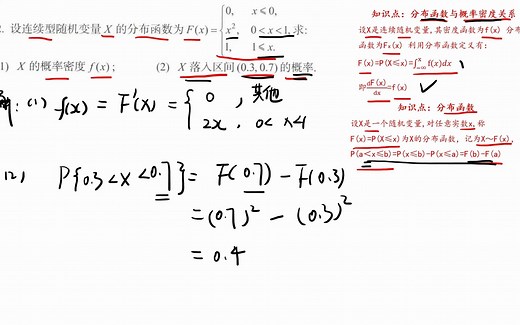 2. 设连续型随机变量 X 的分布函数为 F(x)= { 0, x≤0,
x², 0<x<1, 求:
1, 1≤x.
1) X 的概率密度 f(x);
(2) X 落入区间 (0.3, 0.7) 的概率.
解: (1) f(x) = F'(x) = { 0 , 其他
2x, 0< x<1
(2) P{0.3<X<0.7} = F(0.7) - F(0.3)
= (0.7)² - (0.3)²
= 0.4
知识点: 分布函数与概率密度关系
设X是连续随机变量, 其密度函数为f(x) 分布
函数为Fₓ(x) 利用分布函数定义有:
F(x)=P(X≤x)=∫f(x)dx
即dF(x)/dx=f(x)
知识点: 分布函数
设X是一个随机变量, 对任意实数x, 称
F(x)=P(X≤x)为X的分布函数, 记为X~F(x),
P(a<x≤b)=P(x≤b)-P(x≤a)=F(b)-F(a)